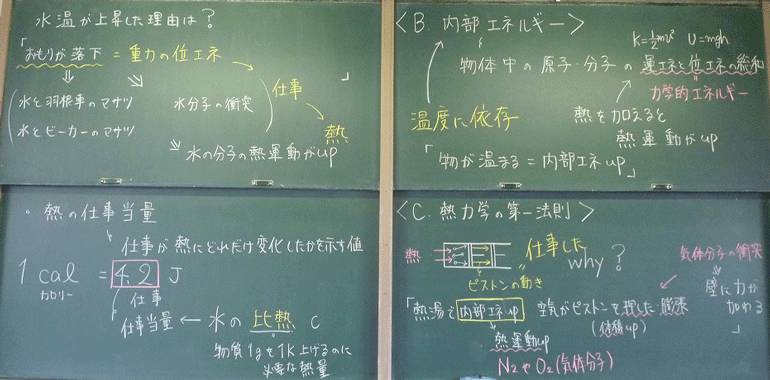 水温が上昇した理由は？
「おもりが落下 = 重力の位エネ
水と羽根車のマサツ
水とビーカーのマサツ
水分子の衝突
水の分子の熱運動がup 」
仕事
熱
・熱の仕事当量
仕事が熱にどれだけ変化したかを示す値
1 cal = 4.2 J
カロリー
仕事
仕事当量 ← 水の比熱 C
物質1gを1K上げるのに
必要な熱量
<B. 内部エネルギー>
K=½mv² U=mgh
物体中の原子・分子の運エネと位エネの総和
力学的エネルギー
温度に依存
熱を加えると
熱運動がup
「物が温まる = 内部エネup」
<C. 熱力学の第一法則>
熱
仕事した
why ?
ピストンの動き
気体分子の衝突
壁に力が
加わる
」
「熱湯で内部エネup 空気がピストンを押した 膨張
(体積up)
熱運動up
N₂やO₂(気体分子)